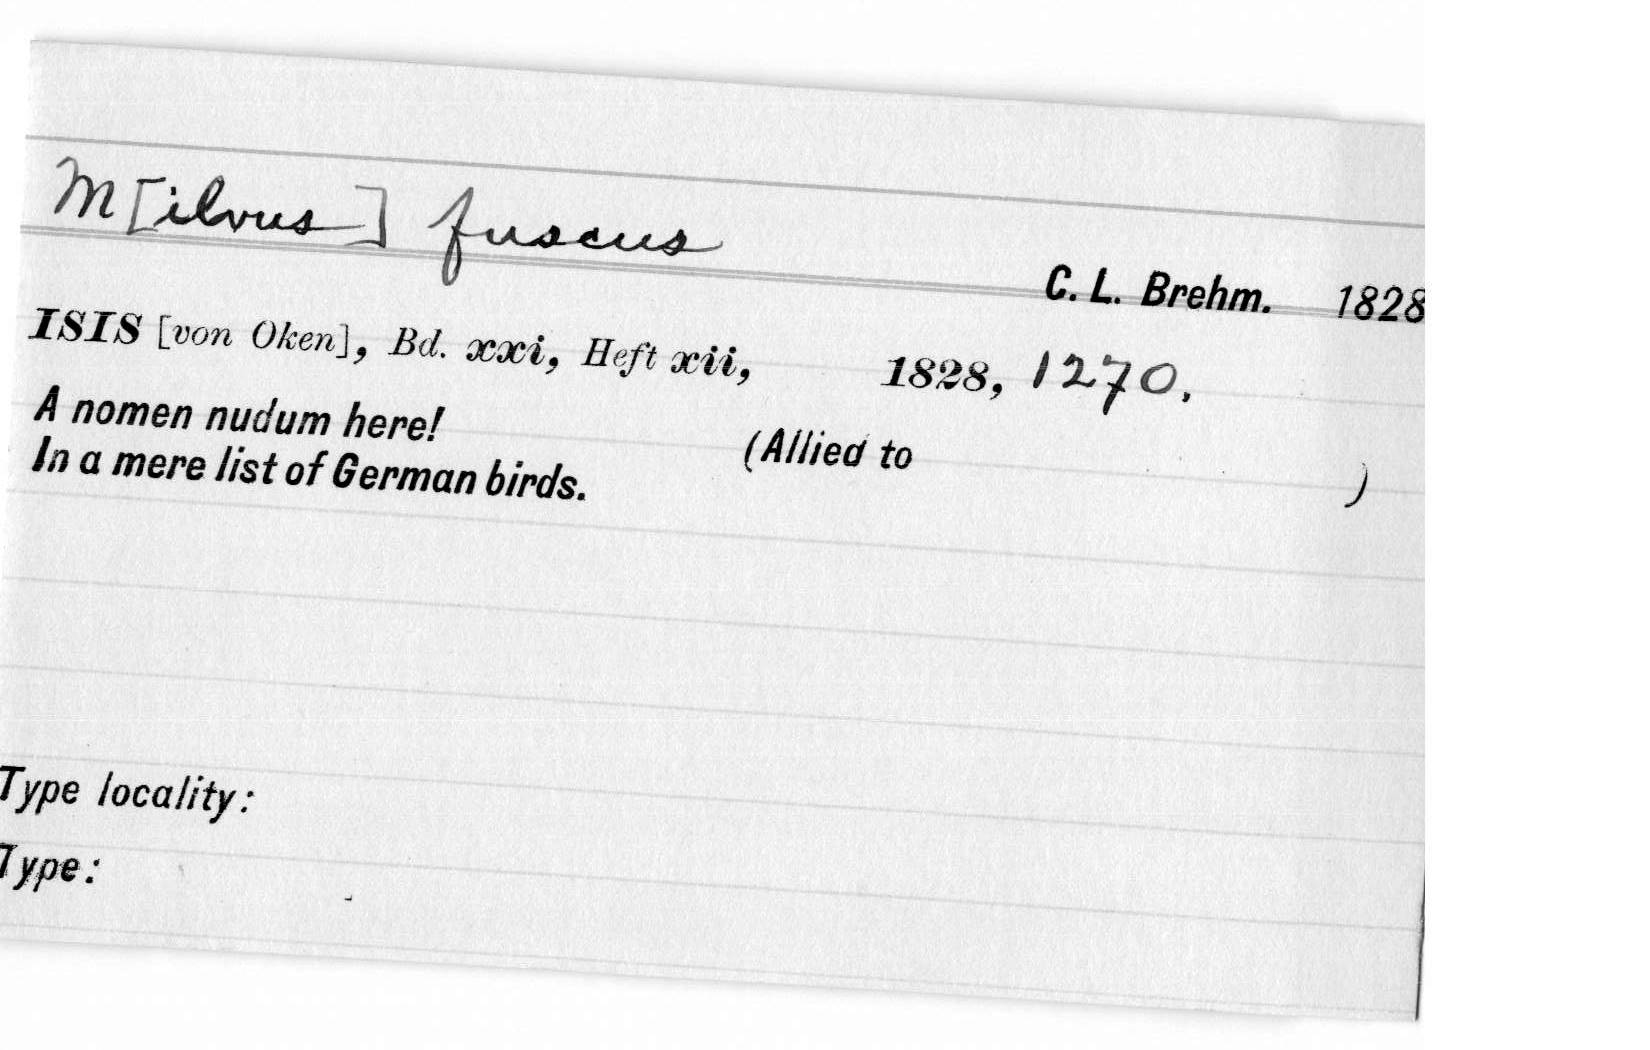 M[ilvus] fuscus
C. L. Brehm. 1828
ISIS [von Oken], Bd. xxi, Heft xii, 1828, 1270.
A nomen nudum here! (Allied to )
In a mere list of German birds.
Type locality:
Type: